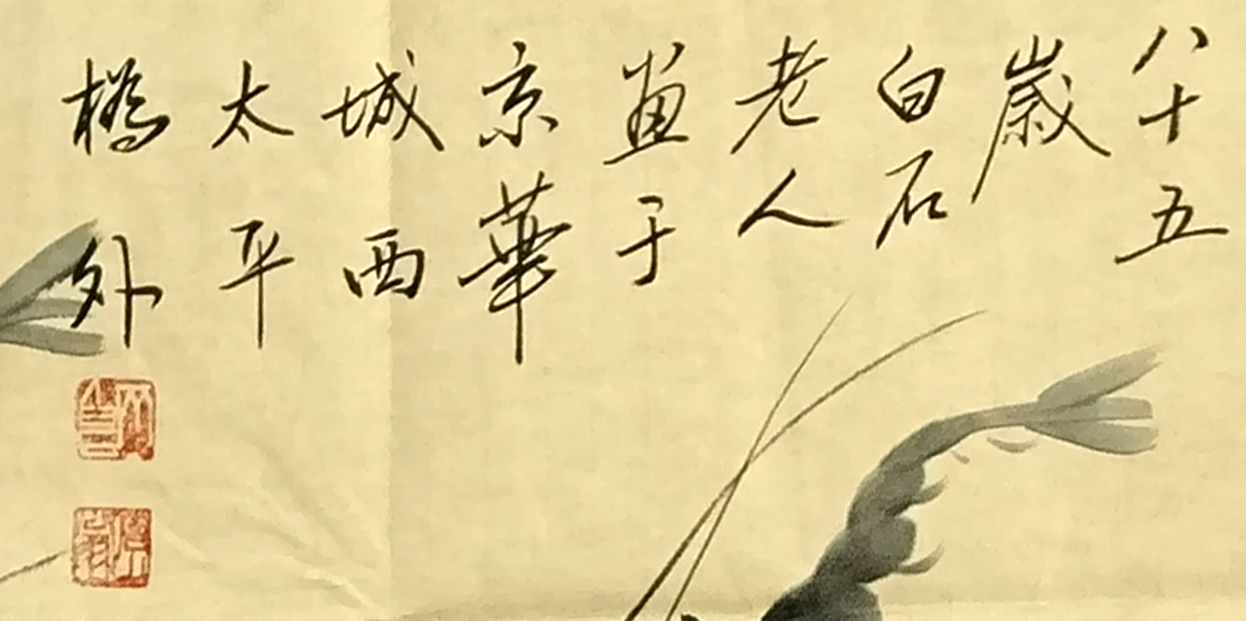 八十五
歲
白石
老人
畫于
京華
城西
太平
橋外